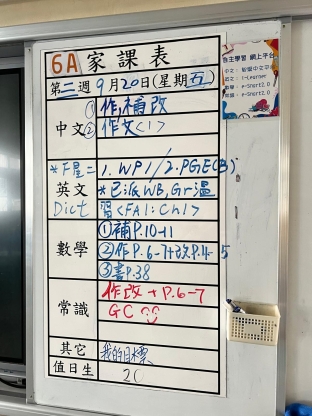 6A 家課表
第二週 9月20日(星期五)
中文 ①作,補改
②作文<1>
*下星二 1. WP1/2. PGE(3)
英文 *已派WB, Gr溫
Dict 習<FA1: Ch1>
數學 ①補P.10-11
②作P.6-7+改P.4-5
③書P.38
常識 作改+P.6-7
GC
其它 我的目標
值日生 20
自主學習 網上平台
英文: i-Learner